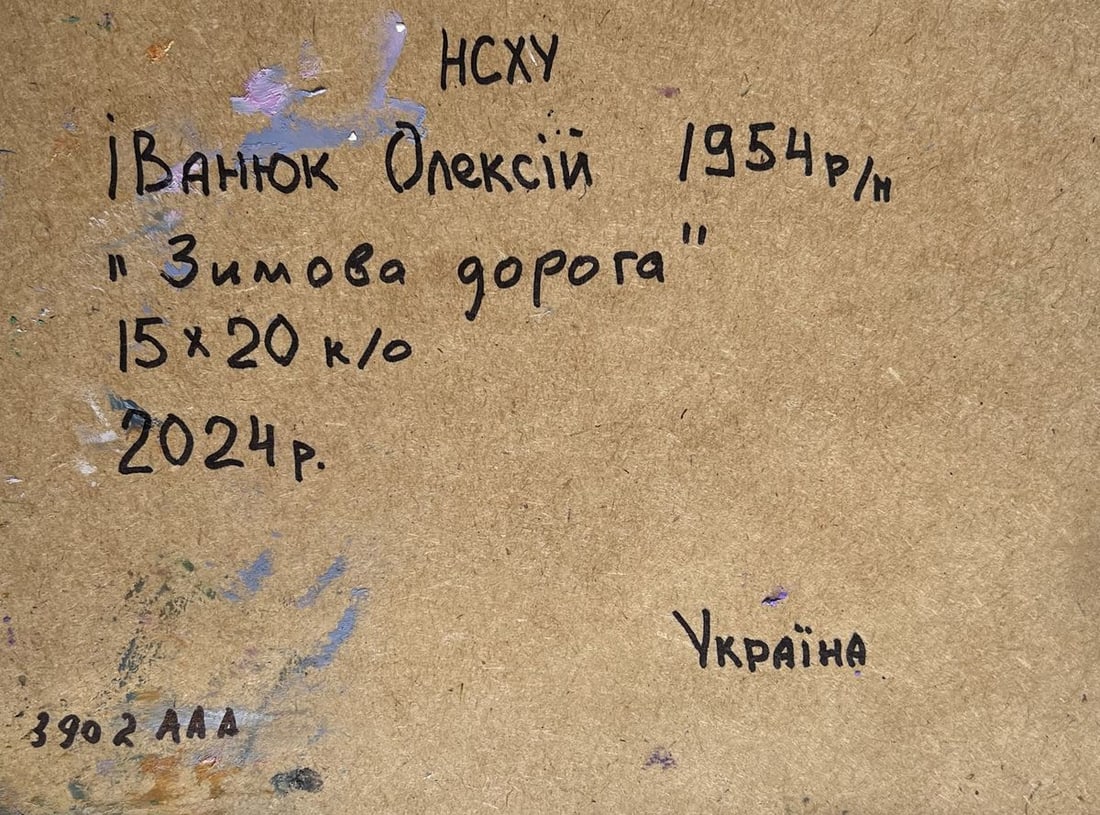 НСХУ
Іванюк Олексій 1954 р/н
"Зимова дорога"
15×20 к/о
2024 р.
Україна
3902 ААА